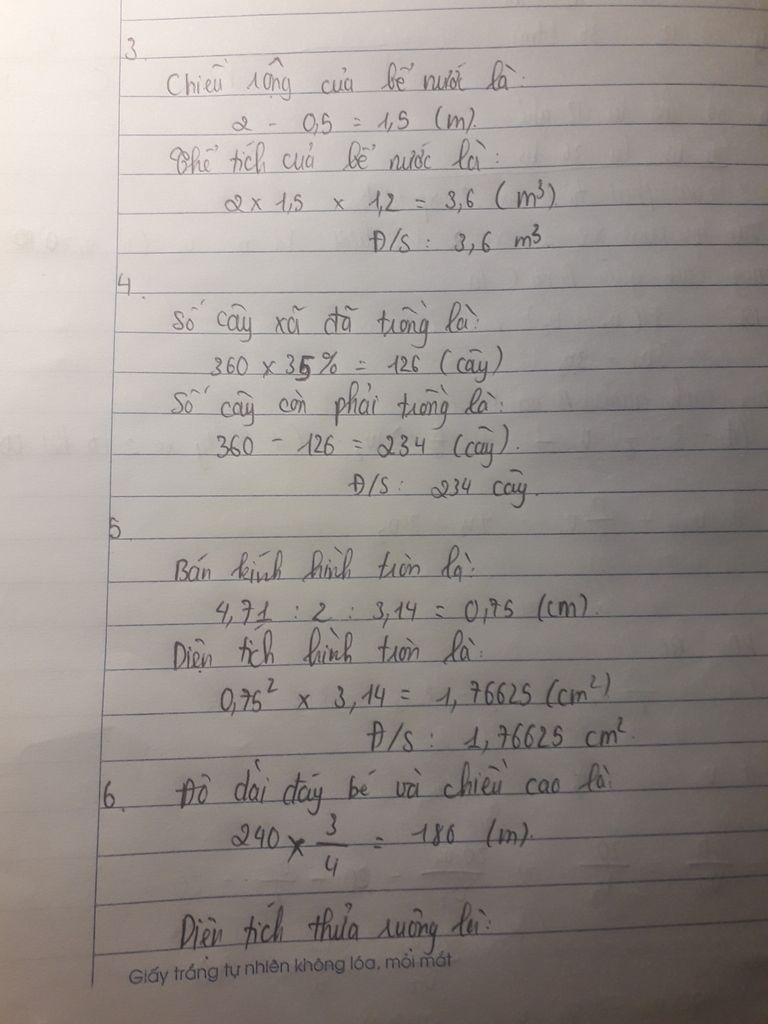 3.
Chiều rộng của bể nước là:
2 - 0,5 = 1,5 (m).
Thể tích của bể nước là:
2 x 1,5 x 1,2 = 3,6 (m³)
Đ/S: 3,6 m³
4.
Số cây xã đã trồng là:
360 x 35% = 126 (cây)
Số cây còn phải trồng là:
360 - 126 = 234 (cây).
Đ/S: 234 cây.
5
Bán kính hình tròn là:
4,71 : 2 : 3,14 = 0,75 (cm).
Diện tích hình tròn là:
0,75² x 3,14 = 1,76625 (cm²)
Đ/S: 1,76625 cm².
6. Độ dài đáy bé và chiều cao là:
240 x 3/4 = 180 (m).
Diện tích thửa ruộng là:
Giấy trắng tự nhiên không lóa, mỏi mắt